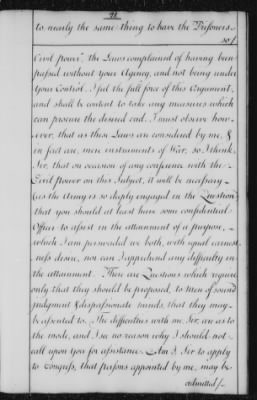 21
to nearly the same thing to have the Prisoners
so/
Civil power, the Laws complained of having been
passed without your Agency, and not being under
Your Control. I feel the full force of this Argument,
and shall be content to take any measures which
can procure the desired end. I must observe how-
ever, that as these Laws are considered by me, &
in fact are, mere instruments of War, so I think,
Sir, that on occasion of any conference with the
Civil power on this Subject, it will be necessary
(as the Army is so deeply engaged in the Question
that you should at least have some confidential
Officer to assist in the attainment of a purpose,
which I am perswaded we both, with equal earnest-
ness desire, nor can I apprehend any difficulty in
the attainment. There are Questions which require
only that they should be proposed, to Men of sound
judgment & dispassionate minds, that they may
be assented to. The difficulties with me, Sir, are as to
the mode, and I see no reason why I should not
call upon you for assistance. Am I, Sir to apply
to Congress, that persons appointed by me, may be
admitted/